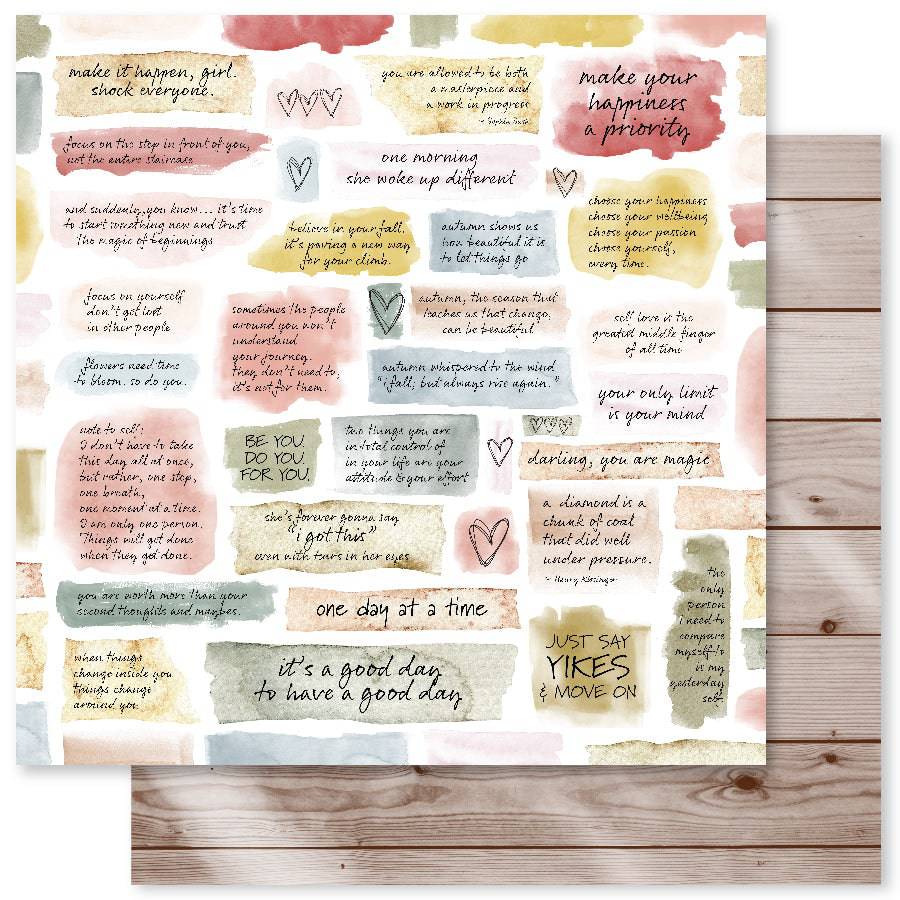 make it happen, girl.
shock everyone.
you are allowed to be both
a masterpiece and
a work in progress
~ Sophia Bush
make your
happiness
a priority
focus on the step in front of you,
not the entire staircase
one morning
she woke up different
and suddenly you know... it's time
to start something new and trust
the magic of beginnings
believe in your fall,
it's paving a new way
for your climb.
autumn shows us
how beautiful it is
to let things go
choose your happiness
choose your wellbeing
choose your passion
choose yourself,
every time.
focus on yourself
don't get lost
in other people
sometimes the people
around you won't
understand
your journey.
they don't need to,
it's not for them.
autumn, the season that
teaches us that change,
can be beautiful
self love is the
greatest middle finger
of all time
flowers need time
to bloom. so do you.
autumn whispered to the wind
"i fall; but always rise again."
your only limit
is your mind
note to self:
I don't have to take
this day all at once,
but rather, one step,
one breath,
one moment at a time.
I am only one person.
Things will get done
when they get done.
BE YOU.
DO YOU.
FOR YOU.
two things you are
in total control of
in your life are your
attitude & your effort
darling, you are magic
she's forever gonna say
"i got this"
even with tears in her eyes
a diamond is a
chunk of coal
that did well
under pressure.
~ Henry Kissinger
the
only
person
I need to
compare
myself to
is my
yesterday
self.
you are worth more than your
second thoughts and maybes.
one day at a time
JUST SAY
YIKES
& MOVE ON
when things
change inside you
things change
around you.
it's a good day
to have a good day